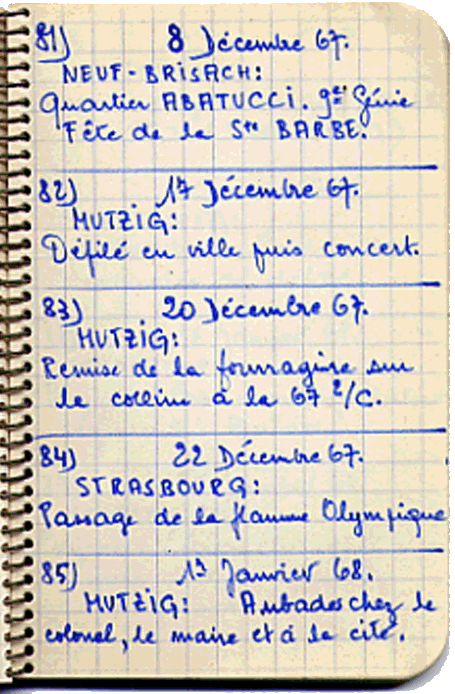 81) 8 Décembre 67.
NEUF-BRISACH:
Quartier ABATUCCI. 9ème Génie
Fête de la Ste BARBE.
82) 17 Décembre 67.
MUTZIG:
Défilé en ville puis concert.
83) 20 Décembre 67.
MUTZIG:
Remise de la fourragère sur
la colline à la 67 2/C.
84) 22 Décembre 67.
STRASBOURG:
Passage de la flamme Olympique
85) Janvier 68.
MUTZIG: Aubades chez le
colonel, le maire et à la cité.